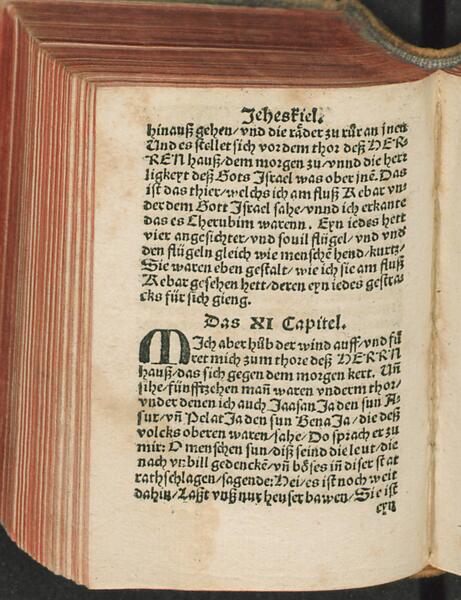 Jeheskiel.
hinauß gehen/vnd die råder zu růr an jnen
Und es stellet sich vor dem thor deß HER-
REN hauß/dem morgen zu/vnnd die herr
ligkeyt deß Gots Israel was ober jnē. Das
ist das thier/welchs ich am fluß Kebar vn-
der dem Gott Israel sahe/vnnd ich erkante
das es Cherubim warenn. Eyn iedes hett
vier angesichter/vnd souil flügel/vnd vnd'
den flügeln gleich wie menschē hend/kurtz/
Sie waren eben gestalt/wie ich sie am fluß
Kebar gesehen hett/deren eyn iedes gestra-
cks für sich gieng.
Das XI Capitel.
MIch aber hůb der wind auff/vnd fů
ret mich zum thore deß HERRN
hauß/das sich gegen dem morgen kert. Vñ
sihe/fünfftzehen mañ waren vnderm thor/
vnder denen ich auch Jaasan Ja den sun A-
sur/vñ Pelat Ja den sun Bena Ja/die deß
volcks oberen waren/sahe/Do sprach er zu
mir: O menschen sun/diß seind die leut/die
nach vnbill gedenckē/vñ böses in diser stat
rathschlagen/sagende: Hei/es ist noch weit
dahin/Laßt vnß nur heuser bawen/Sie ist
eyn